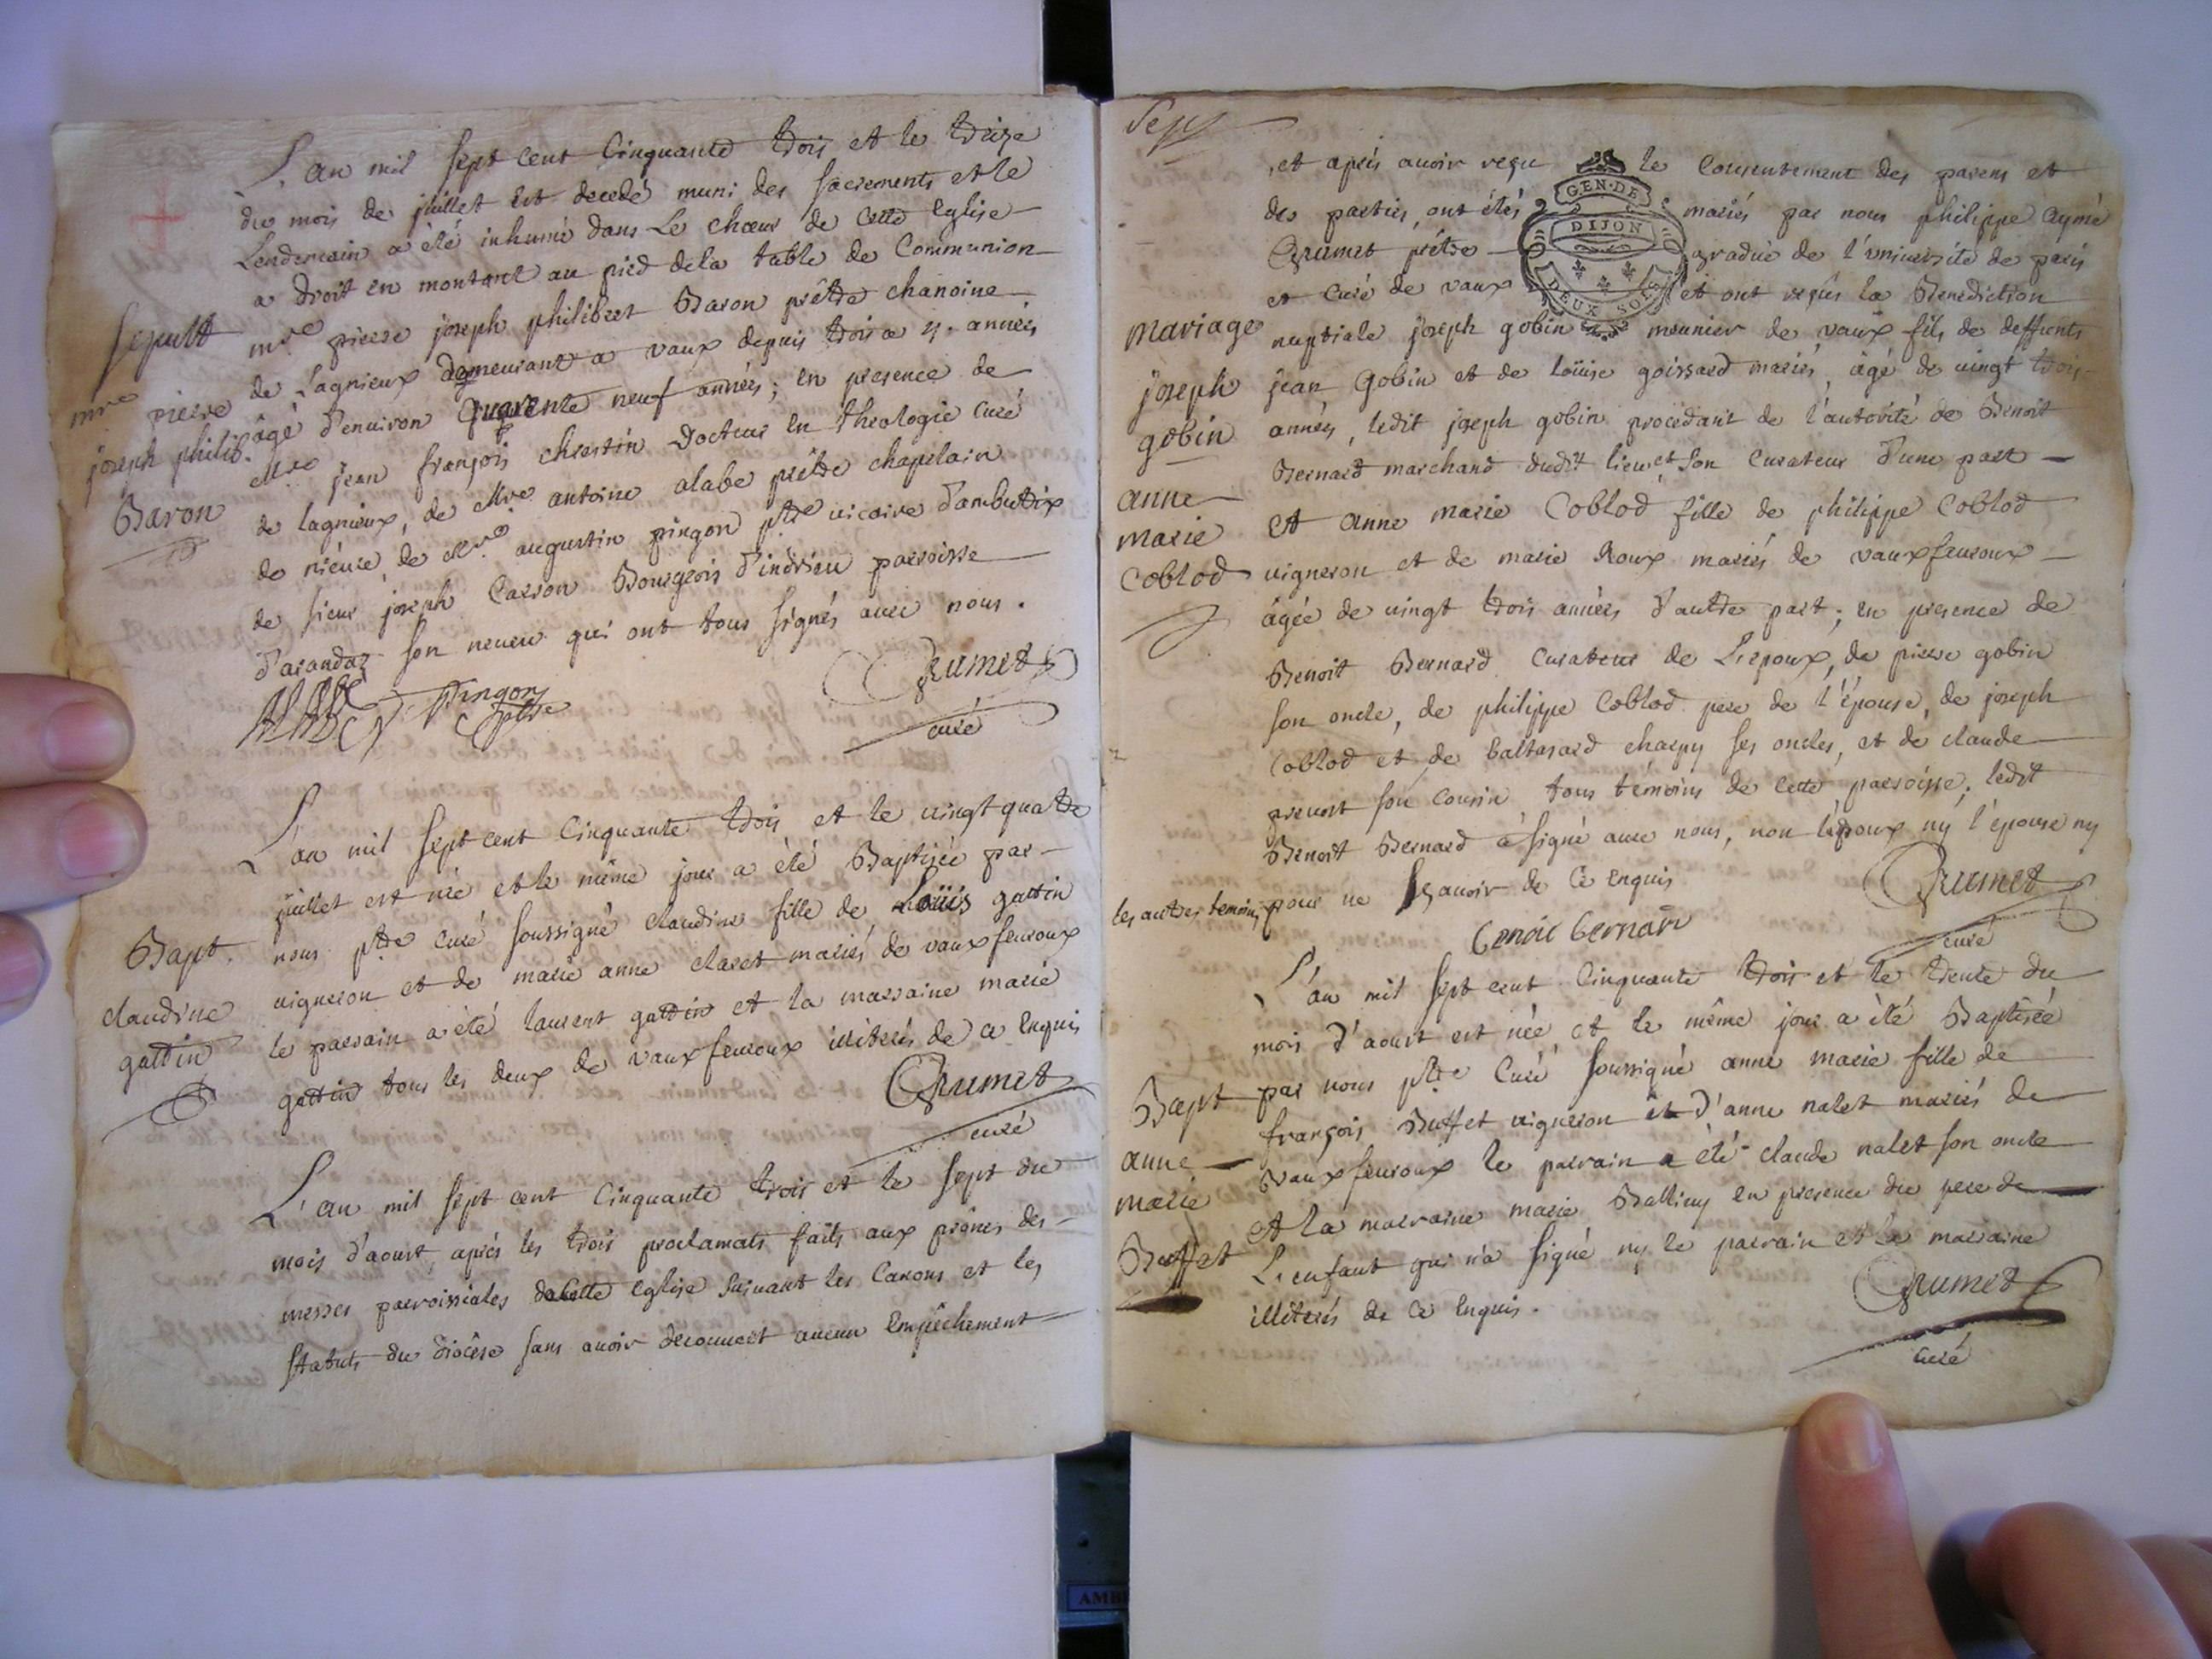 L'an mil sept cent Cinquante trois et le treize
du mois de juillet est decedé muni des sacrements et le
Lendemain a été inhumé dans Le chœur de cette Eglise
a droit en montant au pied de la table de Communion
Sepult
mre pierre joseph philibert Baron prêtre chanoine
de Lagnieux demeurant a vaux depuis trois a 4. années
mre pierre
âgé d'environ quarente neuf années; en presence de
joseph philib.
Mre jean françois chrestin Docteur en theologie curé
Baron
de lagnieux, de Mre antoine alabe prêtre chapelain
de niévre, de Mre augustin pingon ptre vicaire d'ambutrix
de sieur joseph Carron Bourgeois d'indrieu parroisse
d'arandaz son neveu qui ont tous signés avec nous.
Alabe Pingon ptre Grumet
curé
L'an mil sept cent Cinquante trois et le vingt quatre
juillet est née et le même jour a été Baptisée par
nous ptre curé soussigné claudine fille de Loüis gattin
Bapt.
vigneron et de marie anne claret mariés de vaux fevroux
claudine
le parrain a été laurent gattin et la marraine marie
gattin
gattin tous les deux de vaux fevroux illiterés de ce enquis
Grumet
curé
L'an mil sept cent Cinquante trois et le sept du
mois d'aoust, aprés les trois proclamats faits aux prônes des
messes parroissiales de cette Eglise suivant les Canons et les
statuts du diocêse sans avoir decouvert aucun Empêchement
Sept
et aprés avoir reçu le Consentement des parens et
des parties, ont étés mariés par nous philippe aymé
Grumet prêtre gradué de l'université de paris
et curé de vaux et ont reçus la Benediction
GEN. DE
DIJON
DEUX SOLS
mariage
nuptiale joseph gobin meunier de vaux fils de deffunts
joseph
jean Gobin et de Loüise goissard mariés, âgé de vingt trois
gobin
années, ledit joseph gobin procedant de l'autorité de Benoit
Bernard marchand dudit lieu et son Curateur d'une part
anne
Et anne marie Coblod fille de philippe Coblod
marie
Coblod
vigneron et de marie Roux mariés de vaux fevroux
âgée de vingt trois années d'autre part; en presence de
Benoit Bernard Curateur de L'epoux, de pierre gobin
son oncle, de philippe Coblod pere de l'épouse, de joseph
Coblod et de baltasard charpy ses oncles, et de claude
prevost son cousin tous témoins de cette parroisse; ledit
Benoit Bernard a signé avec nous, non l'epoux ny l'épouse ny
les autres temoins pour ne sçavoir de ce enquis
Grumet
curé
benoit bernard
L'an mil sept cent Cinquante trois et le trente du
mois d'aoust est née, et le même jour a été Baptisée
Bapt
par nous ptre Curé soussigné anne marie fille de
françois Buffet vigneron et d'anne nalet mariés de
anne
vaux fevroux le parrain a été claude nalet son oncle
marie
et la marraine marie Ballivy en presence du pere de
Buffet
L'enfant qui n'a signé ny le parrain et la marraine
illiterés de ce enquis.
Grumet
curé